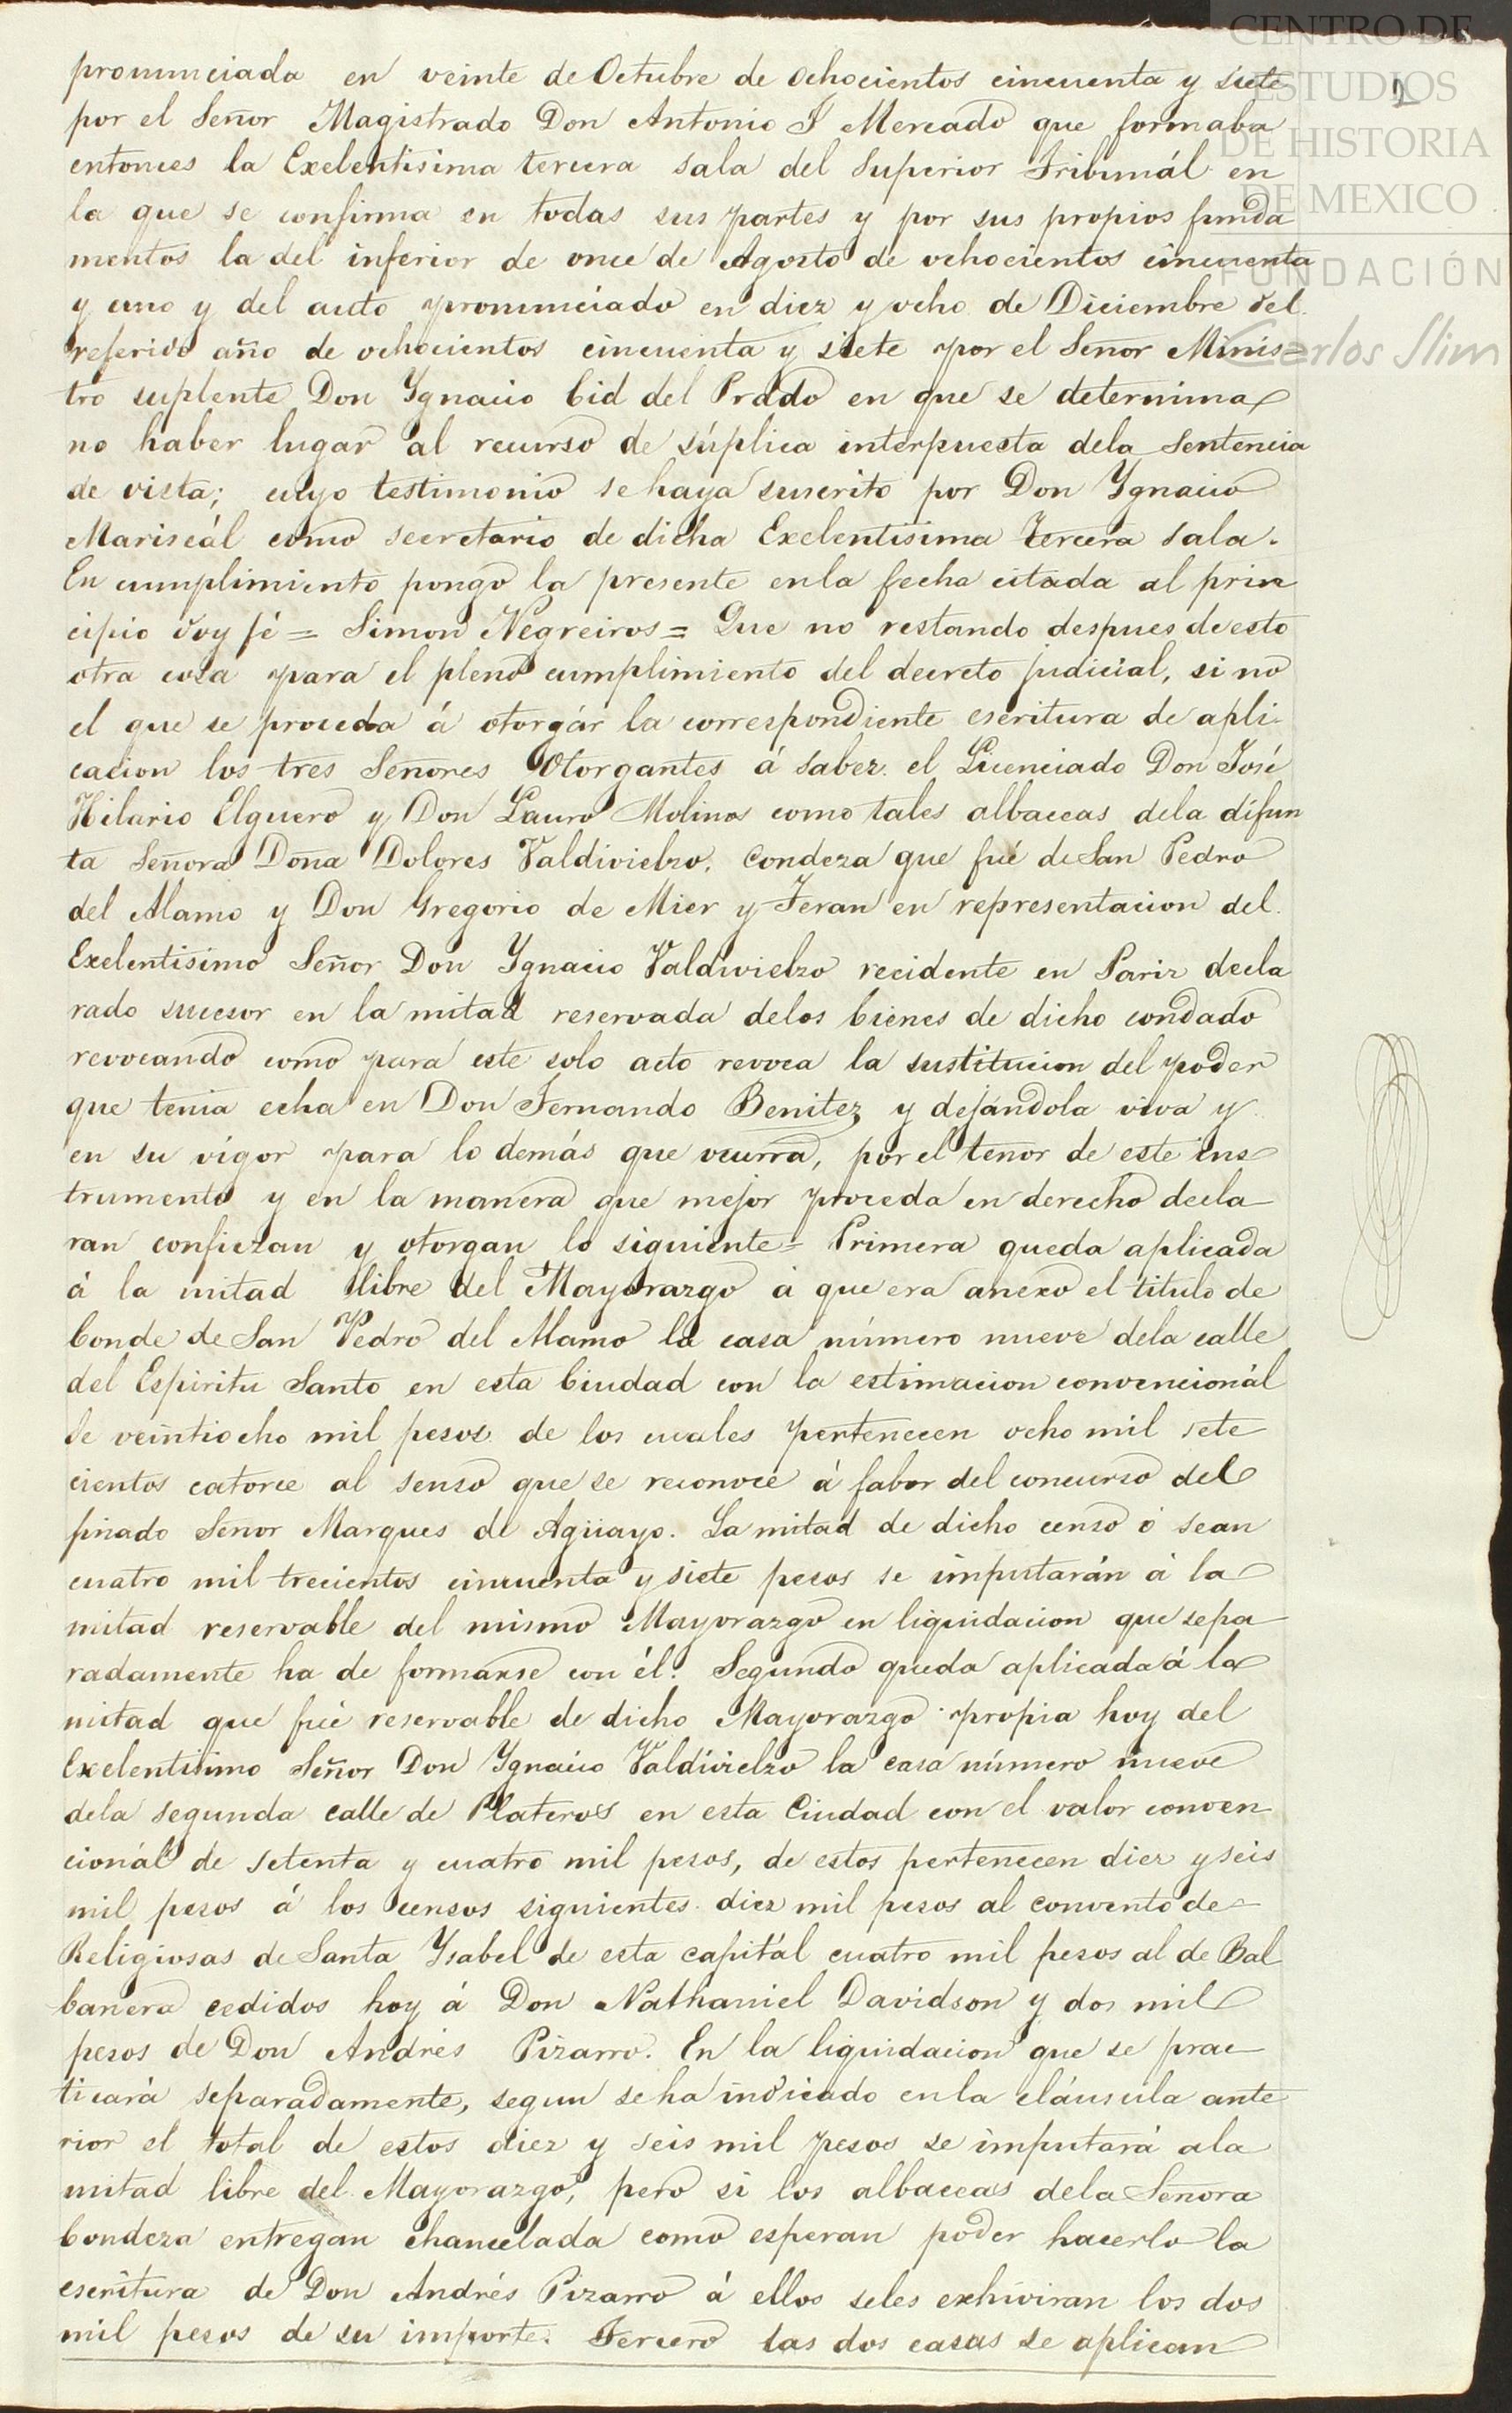 CENTRO DE
ESTUDIOS
DE HISTORIA
DE MEXICO
FUNDACIÓN
Carlos Slim
2
pronunciada en veinte de Octubre de ochocientos cincuenta y siete
por el Señor Magistrado Don Antonio I Mercado que formaba
entonces la Exelentisima tercera sala del Superior Tribunál en
la que se confirma en todas sus partes y por sus propios funda
mentos la del inferior de once de Agosto de ochocientos cincuenta
y uno y del auto pronunciado en diez y ocho de Diciembre del
referido año de ochocientos cincuenta y siete por el Señor Minis=
tro suplente Don Ygnacio Cid del Prado en que se determina
no haber lugar al recurso de súplica interpuesta dela Sentencia
de vista; cuyo testimonio se haya suscrito por Don Ygnacio
Mariscál como secretario de dicha Exelentisima tercera sala.
En cumplimiento pongo la presente enla fecha citada al prin
cipio doy fé = Simon Negreiros = Que no restando despues de esto
otra cosa para el pleno cumplimiento del decreto judicial, si no
el que se proceda á otorgár la correspondiente escritura de apli-
cacion los tres Señores Otorgantes á saber. el Licenciado Don José
Hilario Elguero y Don Lauro Molinos como tales albaceas dela difun
ta Señora Doña Dolores Valdivielzo, Condeza que fué de San Pedro
del Alamo y Don Gregorio de Mier y Teran en representacion del
Exelentisimo Señor Don Ygnacio Valdivielzo recidente en Pariz decla
rado sucesor en la mitad reservada delos bienes de dicho condado
revocando como para este solo acto revoca la sustitucion del poder
que tenia echa en Don Fernando Benitez y dejándola viva y
en su vigor para lo demás que ocurra, por el tenor de este ins
trumento y en la manera que mejor proceda en derecho decla
ran confiezan y otorgan lo siguiente= Primera queda aplicada
á la mitad libre del Mayorazgo á que era anexo el titulo de
Conde de San Pedro del Alamo la casa número nueve dela calle
del Espiritu Santo en esta Ciudad con la estimacion convencionál
de veintiocho mil pesos de los cuales pertenecen ocho mil sete
cientos catorce al senso que se reconoce á fabor del concurso del
finado Señor Marques de Agüayo. La mitad de dicho censo ó sean
cuatro mil trecientos cincuenta y siete pesos se imputarán á la
mitad reservable del mismo Mayorazgo en liquidacion que sepa
radamente ha de formarse con él. Segundo queda aplicada á la
mitad que fué reservable de dicho Mayorazgo propia hoy del
Exelentisimo Señor Don Ygnacio Valdivielzo la casa número nueve
dela segunda calle de Plateros en esta Ciudad con el valor conven
cionál de setenta y cuatro mil pesos, de estos pertenecen diez y seis
mil pesos á los censos siguientes diez mil pesos al convento de
Religiosas de Santa Ysabel de esta capitál cuatro mil pesos al de Bal
banera cedidos hoy á Don Nathaniel Davidson y dos mil
pesos de Don Andrés Pizarro. En la liquidacion que se prac
ticará separadamente, segun se ha indicado en la cláusula ante
rior el total de estos diez y seis mil pesos se imputará ala
mitad libre del Mayorazgo, pero si los albaceas dela Señora
Condeza entregan chancelada como esperan poder hacerlo la
escritura de Don Andrés Pizarro á ellos seles exhiviran los dos
mil pesos de su importe. Tercero las dos casas se aplican